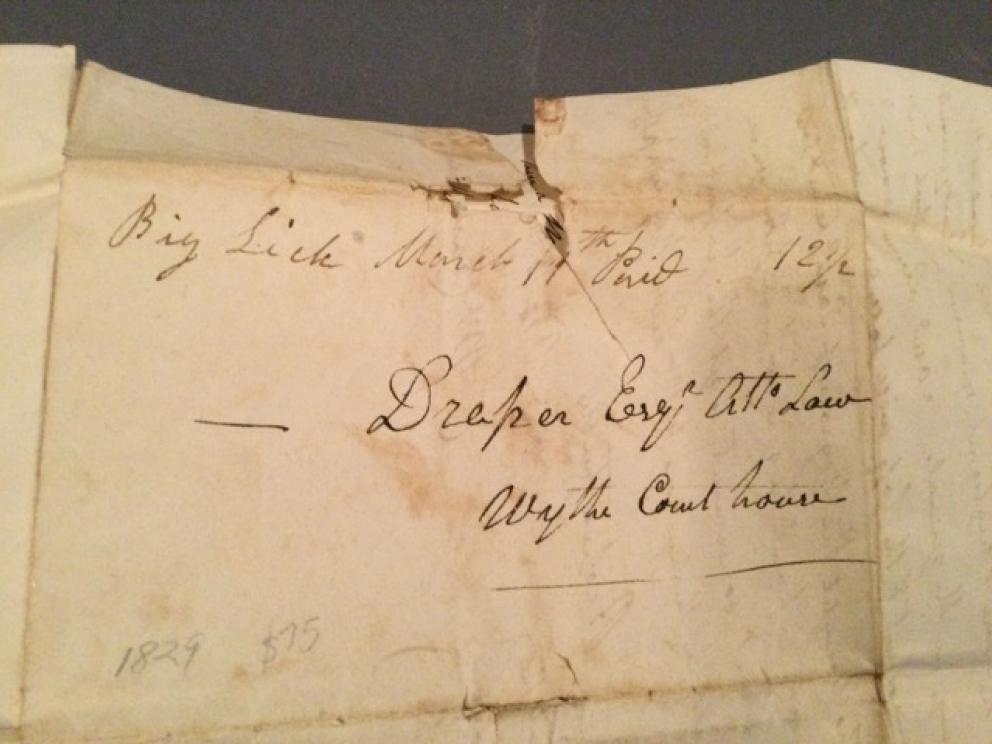 Big Lick March 11th Paid 12½
— Draper Esqr Atto Law
Wythe Court house
1829 $75